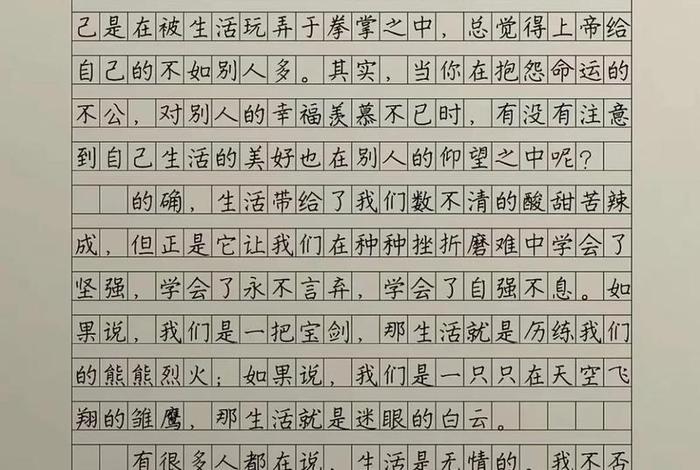 己是在被生活玩弄于拳掌之中，总觉得上帝给
自己的不如别人多。其实，当你在抱怨命运的
不公，对别人的幸福羡慕不已时，有没有注意
到自己生活的美好也在别人的仰望之中呢？
的确，生活带给了我们数不清的酸甜苦辣
成，但正是它让我们在种种挫折磨难中学会了
坚强，学会了永不言弃，学会了自强不息。如
果说，我们是一把宝剑，那生活就是历练我们
的熊熊烈火；如果说，我们是一只只在天空飞
翔的雏鹰，那生活就是迷眼的白云。
有很多人都在说，生活是无情的。我不否